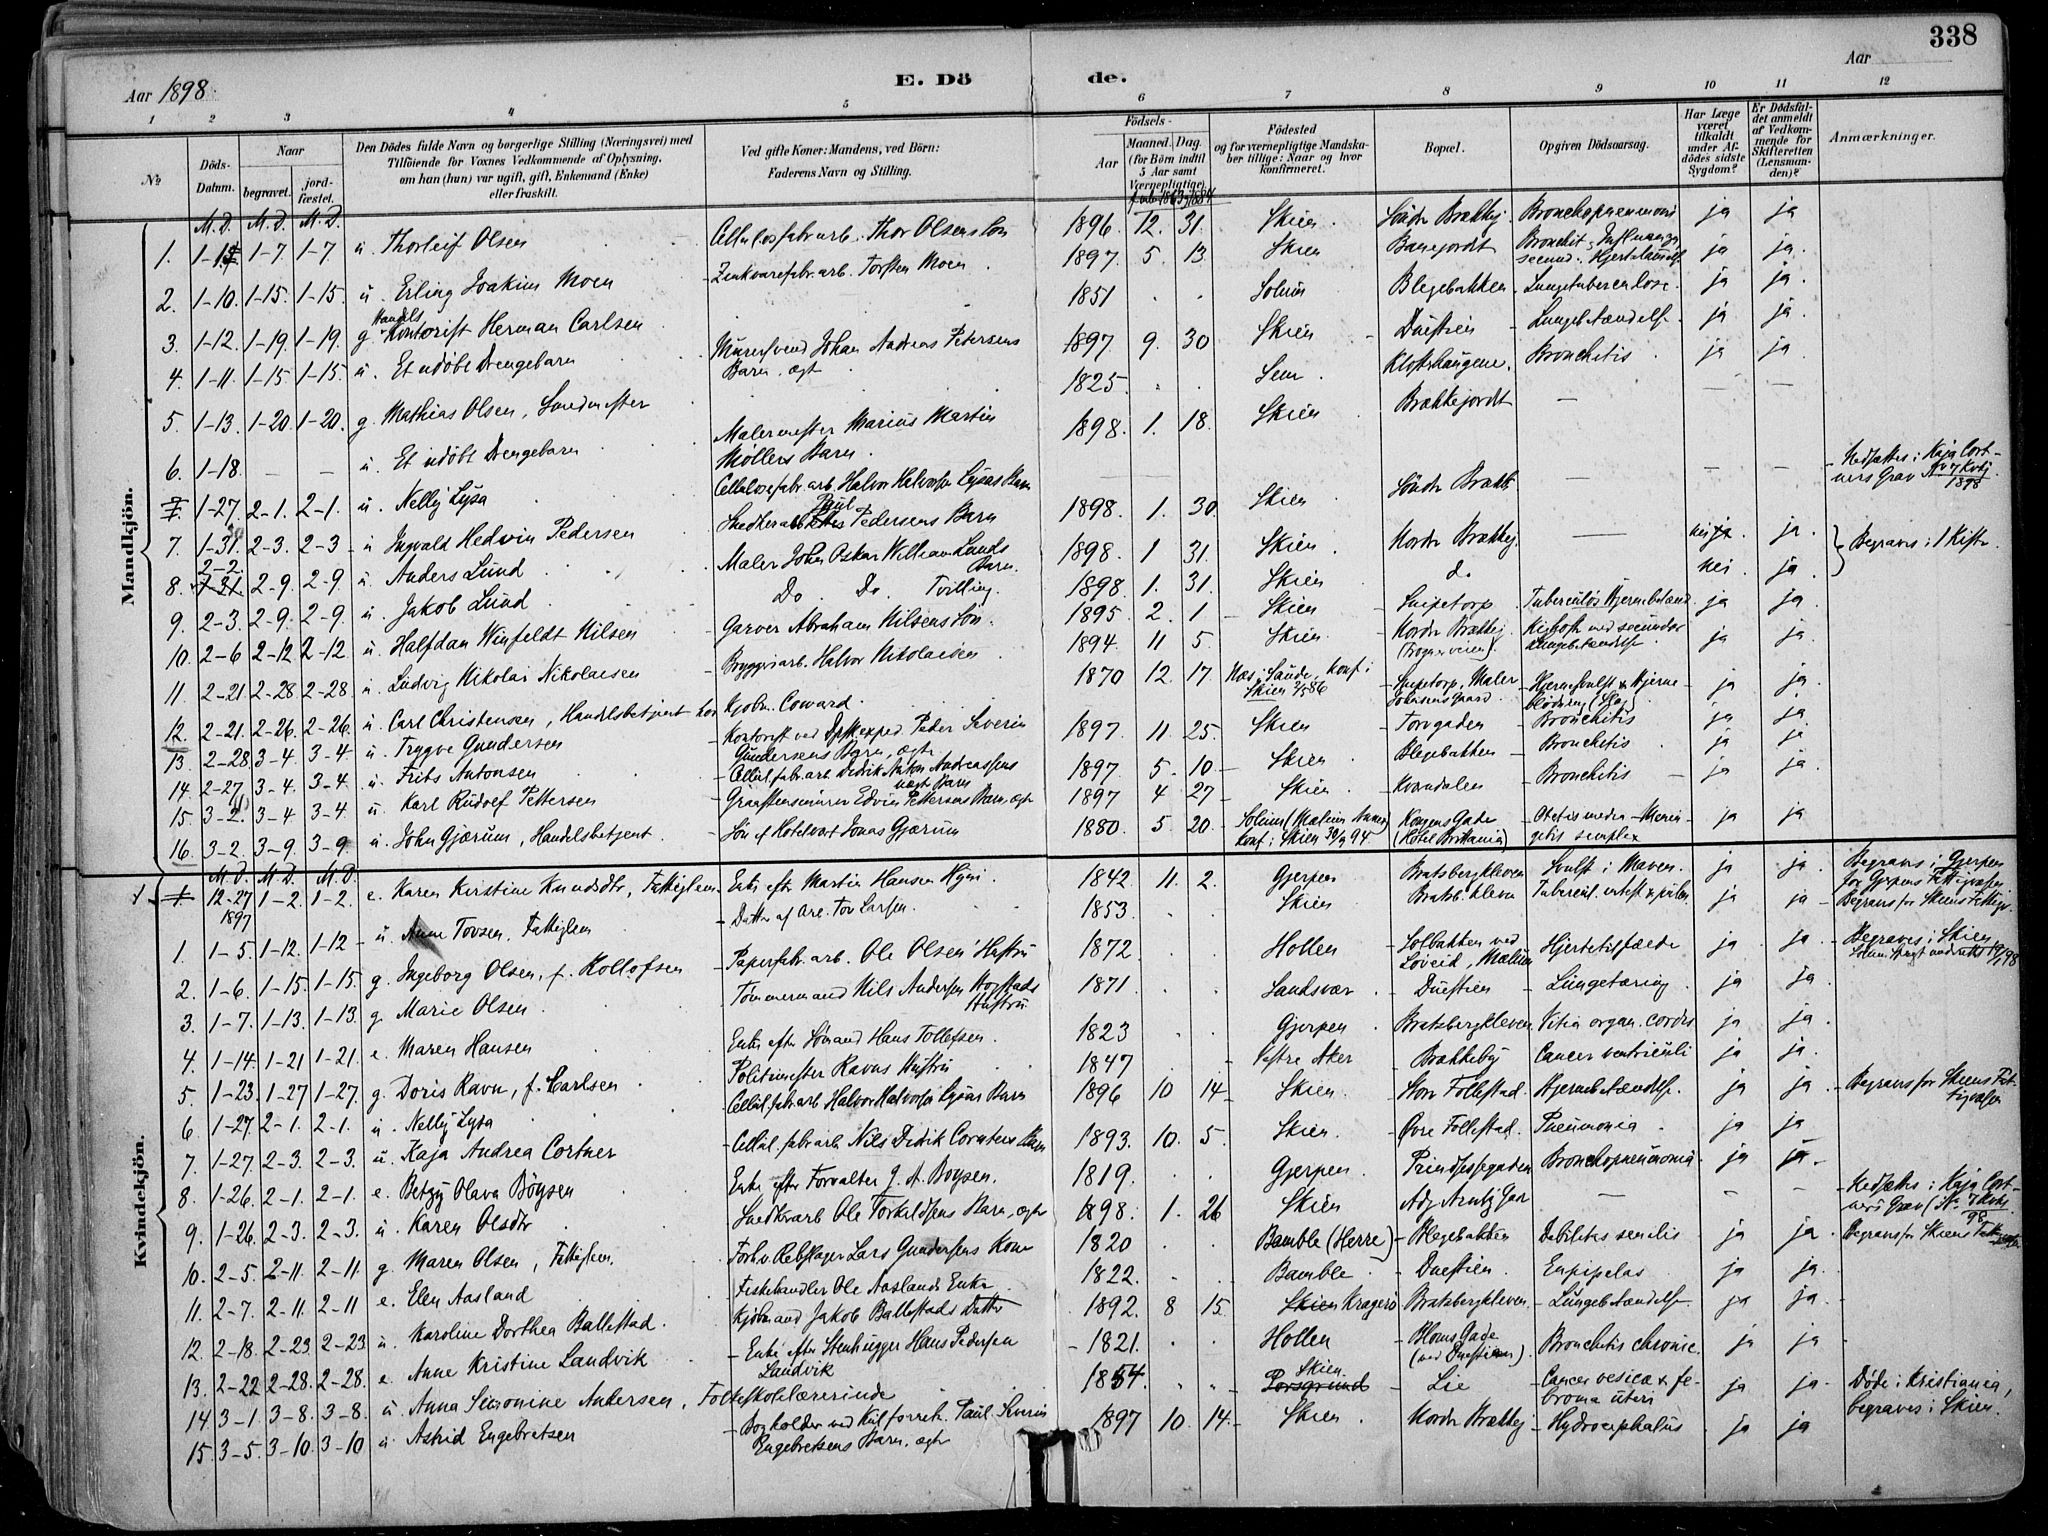 338
Aar 1898.
E. Dö de.
Aar
1 2 3 4 5 6 7 8 9 10 11 12
No
Döds-Datum.
Naar
begravet. jordfæstet.
Den Dödes fulde Navn og borgerlige Stilling (Næringsvei) med Tilföiende for Voxnes Vedkommende af Oplysning, om han (hun) var ugift, gift, Enkemand (Enke) eller fraskilt.
Ved gifte Koner: Mandens, ved Börn: Faderens Navn og Stilling.
Födsels-
Aar Maaned. Dag.
(for Börn indtil 5 Aar samt Værnepligtige)
Födested
og for værnepligtige Mandskaber tillige: Naar og hvor konfirmeret.
Bopæl.
Opgiven Dödsaarsag.
Har Læge været tilkaldt under Afdödes sidste Sygdom?
Er Dödsfaldet anmeldt af Vedkommende for Skifteretten (Lensmanden)?
Anmærkninger.
Mandkjön.
M. D. M. D. M. D.
1. 1-7 1-7 u. Thorleif Olsen Cellulosfabr.arb. Thor Olsens Sön 1896. 12. 31. Skien Söndre Brækkej. Bronchopneumoni ja ja
2. 1-10. 1-15. 1-15. u. Erling Joakim Moen Zinkvarefabr.arb. Torsten Moen 1897. 5. 13. Skien Banejordt Bronchit. Influenza, secund. ja ja.
3. 1-12. 1-19. 1-19. g. Handels Kontorist Herman Carlsen 1851 Solum Blegebakken Lungetuberculose. ja ja.
4. 1-11. 1-15 1-15. u. Et udöbt Drengebarn Murersvend Johan Andreas Petersens Barn. ægt 1897. 9. 30 Skien Duestien Lungebetændelse ja ja.
5. 1-13. 1-20. 1-20. g. Mathias Olsen, Smedmester 1825. Sem Klosterhaugene. Bronchitis ja ja
6. 1-18. - - u. Et udöbt Drengebarn Malermester Marius Martin Möllers Barn 1898. 1. 18. Skien Brækkejordt - - - Nedsattes i Kaja Cortners Grav No 7 Kvkj 1898
7. 1-27. 2-1. 2-1. u. Nelly Lysa Cellulosefabr.arb. Halvor Halvorsen Lysas Barn
7. 1-31. 2-3. 2-3 u. Ingvald Hedvin Pedersen Snedkerarb. Paul Pedersens Barn 1898. 1. 30. Skien Söndre Brækk. nei ja.
8. 2-2. 1-31. 2-9. 2-9. u. Anders Lund Maler Johan Oskar William Lunds Barn. 1898. 1 31. Skien Nordre Brækkej. nei. ja. } Begraves i 1 Kiste.
9. 2-3. 2-9. 2-9. u. Jakob Lund Do Do. Tvilling. 1898. 1. 31. Skien do
10. 2-6 2-12 2-12. u. Halfdan Winfeldt Nilsen Garver Abraham Nilsens Sön. 1895. 2. 1 Skien Snipetorp. Tuberculös Hjernebetænd. ja ja.
11. 2-21 2-28 2-28 u. Ludvig Nikolai Nikolaisen Bryggeriarb. Halvor Nikolaisen 1894. 11 5. Skien Nordre Brækkej. Kighoste med secundær Lungebetændelse ja ja.
12. 2-21. 2-26. 2-26. u. Carl Christensen, Handelsbetjent hos Kjöbm. Coward. 1870 12. 17. Næs i Saude, konf. i Skien 2/5 86 Snipetorp, Maler Johansens Gaard Hjernesvulst & Hjerneblödning ja ja
13. 2-28. 3-4. 3-4 u. Trygve Gundersen Kontorist ved Peder Severin Gundersens Barn, ægt. 1897. 11. 25. Skien Torvgaden Bronchitis ja ja.
14. 2-27. 3-4. 3-4. u. Frits Antonsen Cellul.fabr.arb. Didrik Anton Andreassens uægt Barn 1897 5. 10 Skien Blegebakken Bronchitis ja ja
15. 3-2. 3-4 3-4 u. Karl Rudolf Pettersen Graastensmurer Edvin Pettersens Barn, ægt 1897 4 27 Skien. Kvændalen Bronchitis ja ja.
16. 3-2. 3-9. 3-9. u. John Gjærum, Handelsbetjent. Sön af Hotelvært Jonas Gjærum 1880. 5. 20. Solum (Mælum Annex) konf. i Skien 30/9 94. Kongens Gade (Hotel Brittania) Otitis media - Meningitis simplex ja ja
Kvindekjön.
M. D. M. D. M. D.
12-27 1897 1-2. 1-2. e. Karen Kristine Knudsdtr, Fattiglem Enke efter Martin Hansen 1842. 11. 2. Gjerpen Bratsbergkleven Svulst i Maven. ja ja. Begraves i Gjerpen for Gjerpens Fattigvæsen
1. 1-5. 1-12. 1-12 u. Anne Tovsen, Fattiglem Datter af Arb. Tov Larsen. 1853. Skien Bratsb.kleven ja ja Begraves for Skiens Fattigv.
2. 1-6. 1-15. 1-15. g. Ingeborg Olsen, f. Kollofsen Paperfabr. arb. Ole Olsens Hustru 1872. Hollen Solbakken ved Löveid, Mælum Hjertetilfælde ja ja. Begraves i Skien
3. 1-7. 1-13. 1-13. g. Marie Olsen Tömmermand Nils Andersen Hogstads Hustru 1871 Sandsvær Duestien Lungetæring ja ja
4. 1-14. 1-21 1-21. e. Maren Hansen Enke efter Sömand Hans Tollefsen. 1823 Gjerpen Bratsbergkleven Vitia organ. cordis ja ja.
5. 1-23. 1-27 1-27. g. Doris Ravn, f. Carlsen Politimester Ravns Hustru 1847 Vestre Aker Brækkeby Cancer ventriculi ja ja.
6. 1-27. 2-1. 2-1. u. Nelly Lysa Cellul.fabr.arb Halvor Halvorsen Lysas Barn 1896 10 14 Skien. Store Follestad. Hjernebetændelse. ja ja Begraves for Skiens Fattigvæsen
7. 1-27. 2-3. 2-3. u. Kaja Andrea Cortner Cellul.fabr.arb Nils Didrik Cortners Barn 1893. 10. 5. Skien. Övre Follestad. Pneumonia ja ja
8. 1-26. 2-1. 2-1. e. Betzy Olava Böysen Enke efter Forvalter J. A. Boysen. 1819. Gjerpen Prindsessegaden Bronchopneumonia ja ja
9. 1-26. 2-3. 2-3. u. Karen Olsdtr Snedkerarb Ole Torkildsens Barn, ægte 1898. 1. 26 Skien - - - Nedsattes i Kaja Cortners Grav (No 7 Kvkj 98
10. 2-5. 2-11. 2-11. g. Maren Olsen, Fattiglem. Forhv. Rebslager Lars Gundersens Kone 1820 Bamble (Herre) Blegebakken Debilitas senilis ja ja. Begraves for Skiens Fattigvæsen
11. 2-7. 2-11. 2-11 e. Elen Aasland Fiskehandler Ole Aaslands Enke 1822. Bamble Duestien. Erysipelas ja ja.
12. 2-18. 2-23. 2-23. u. Karoline Dorthea Ballestad. Kjöbmand Jakob Ballestads Datter 1892. 8 15. Skien Kragerö Bratsbergkleven Lungebetændelse ja ja.
13. 2-22 2-28. 2-28. e. Anne Kristine Landvik Enke efter Stenhugger Hans Pedersen Landvik 1821. Hollen Bloms Gade (ved Duestien). Bronchitis chronic. ja ja
14 3-1. 3-8. 3-8. u. Anna Simonine Andersen, Folkeskolelærerinde 1854. Skien Porsgrund Lie Cancer vesicæ & fibroma uteri ja ja Döde i Kristiania, begraves i Skien.
15. 3-5. 3-10. 3-10 u. Astrid Engebretsen Bogholder ved Paul Severin Engebretsens Barn, ægte 1897 10. 14. Skien Nordre Brækkej Hydrocephalus ja ja